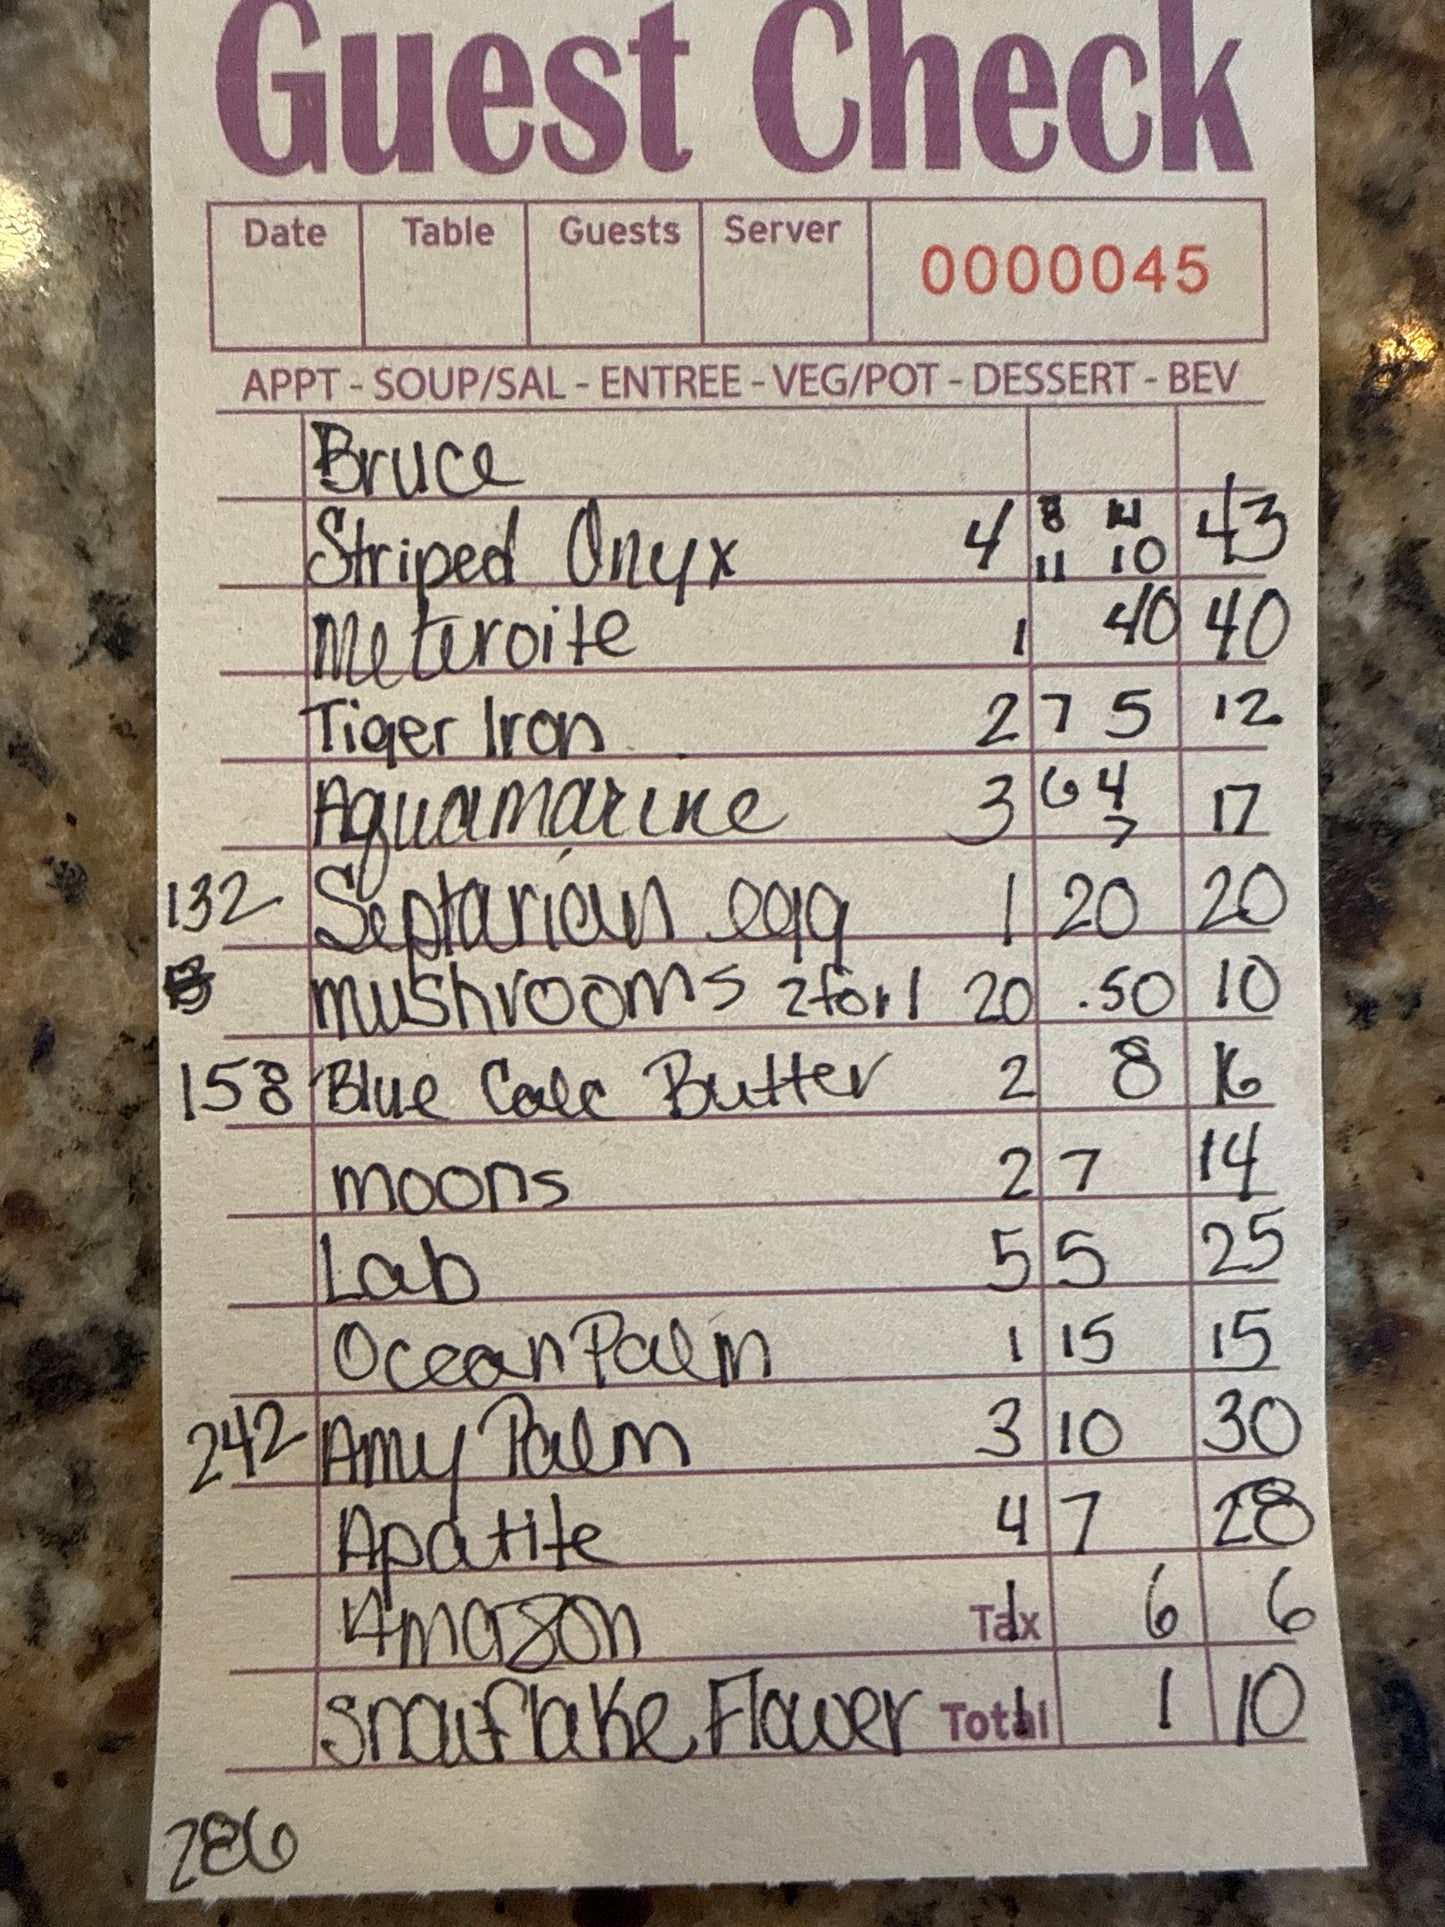 Guest Check
Date Table Guests Server 0000045
APPT - SOUP/SAL - ENTREE - VEG/POT - DESSERT - BEV
Bruce
Striped Onyx 4 8 14 11 10 43
Meteroite 1 40 40
Tiger Iron 2 7 5 12
Aquamarine 3 6 4 7 17
132 Septarian egg 1 20 20
mushrooms 2 for 1 20 .50 10
158 Blue Calc Butter 2 8 16
moons 2 7 14
Lab 5 5 25
Ocean Palm 1 15 15
242 Amy Palm 3 10 30
Apatite 4 7 28
Amazon Tax 1 6 6
Snowflake Flower Total 1 1 10
286